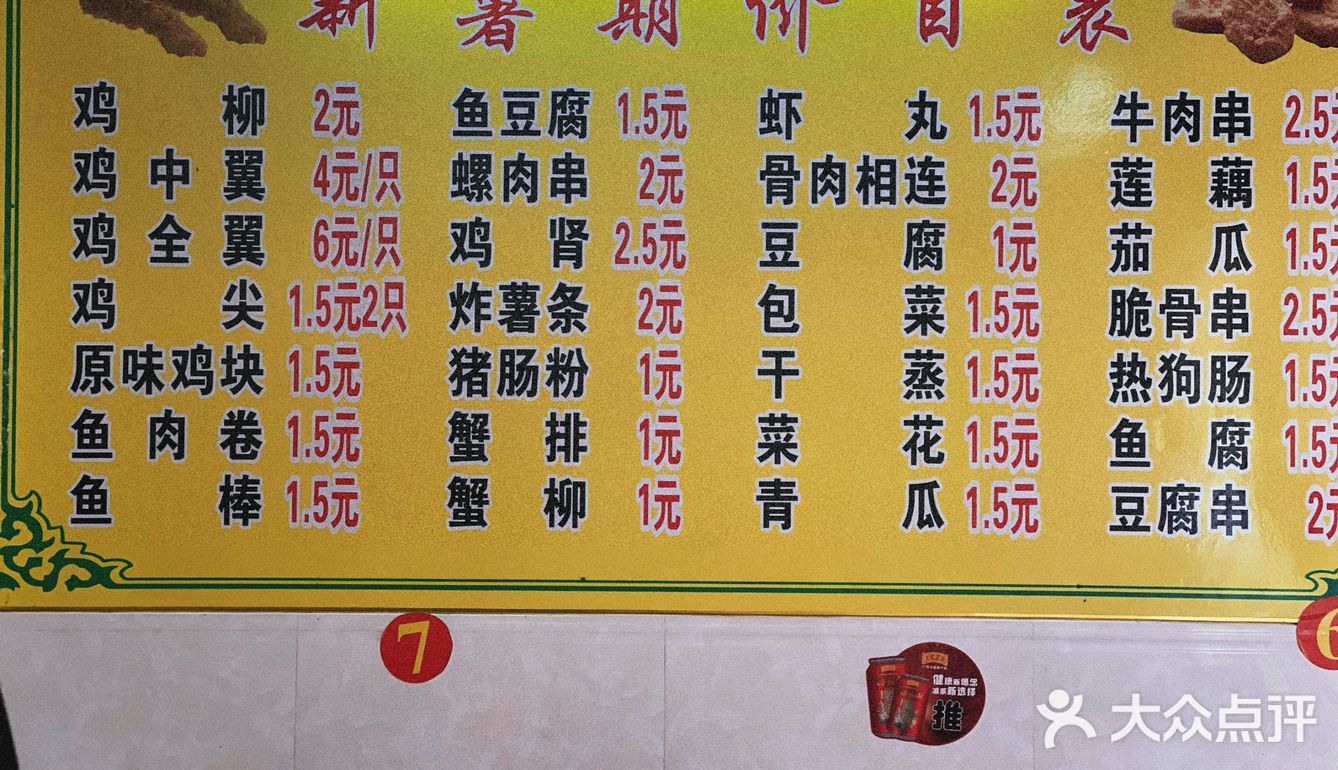 新薯期价目表
鸡柳 2元 鱼豆腐 1.5元 虾丸 1.5元 牛肉串 2.5元
鸡中翼 4元/只 螺肉串 2元 骨肉相连 2元 莲藕 1.5元
鸡全翼 6元/只 鸡肾 2.5元 豆腐 1元 茄瓜 1.5元
鸡尖 1.5元2只 炸薯条 2元 包菜 1.5元 脆骨串 2.5元
原味鸡块 1.5元 猪肠粉 1元 干蒸 1.5元 热狗肠 1.5元
鱼肉卷 1.5元 蟹排 1元 菜花 1.5元 鱼腐 1.5元
鱼棒 1.5元 蟹柳 1元 青瓜 1.5元 豆腐串 2元
7
6
健康新概念
凉茶新选择
推
大众点评